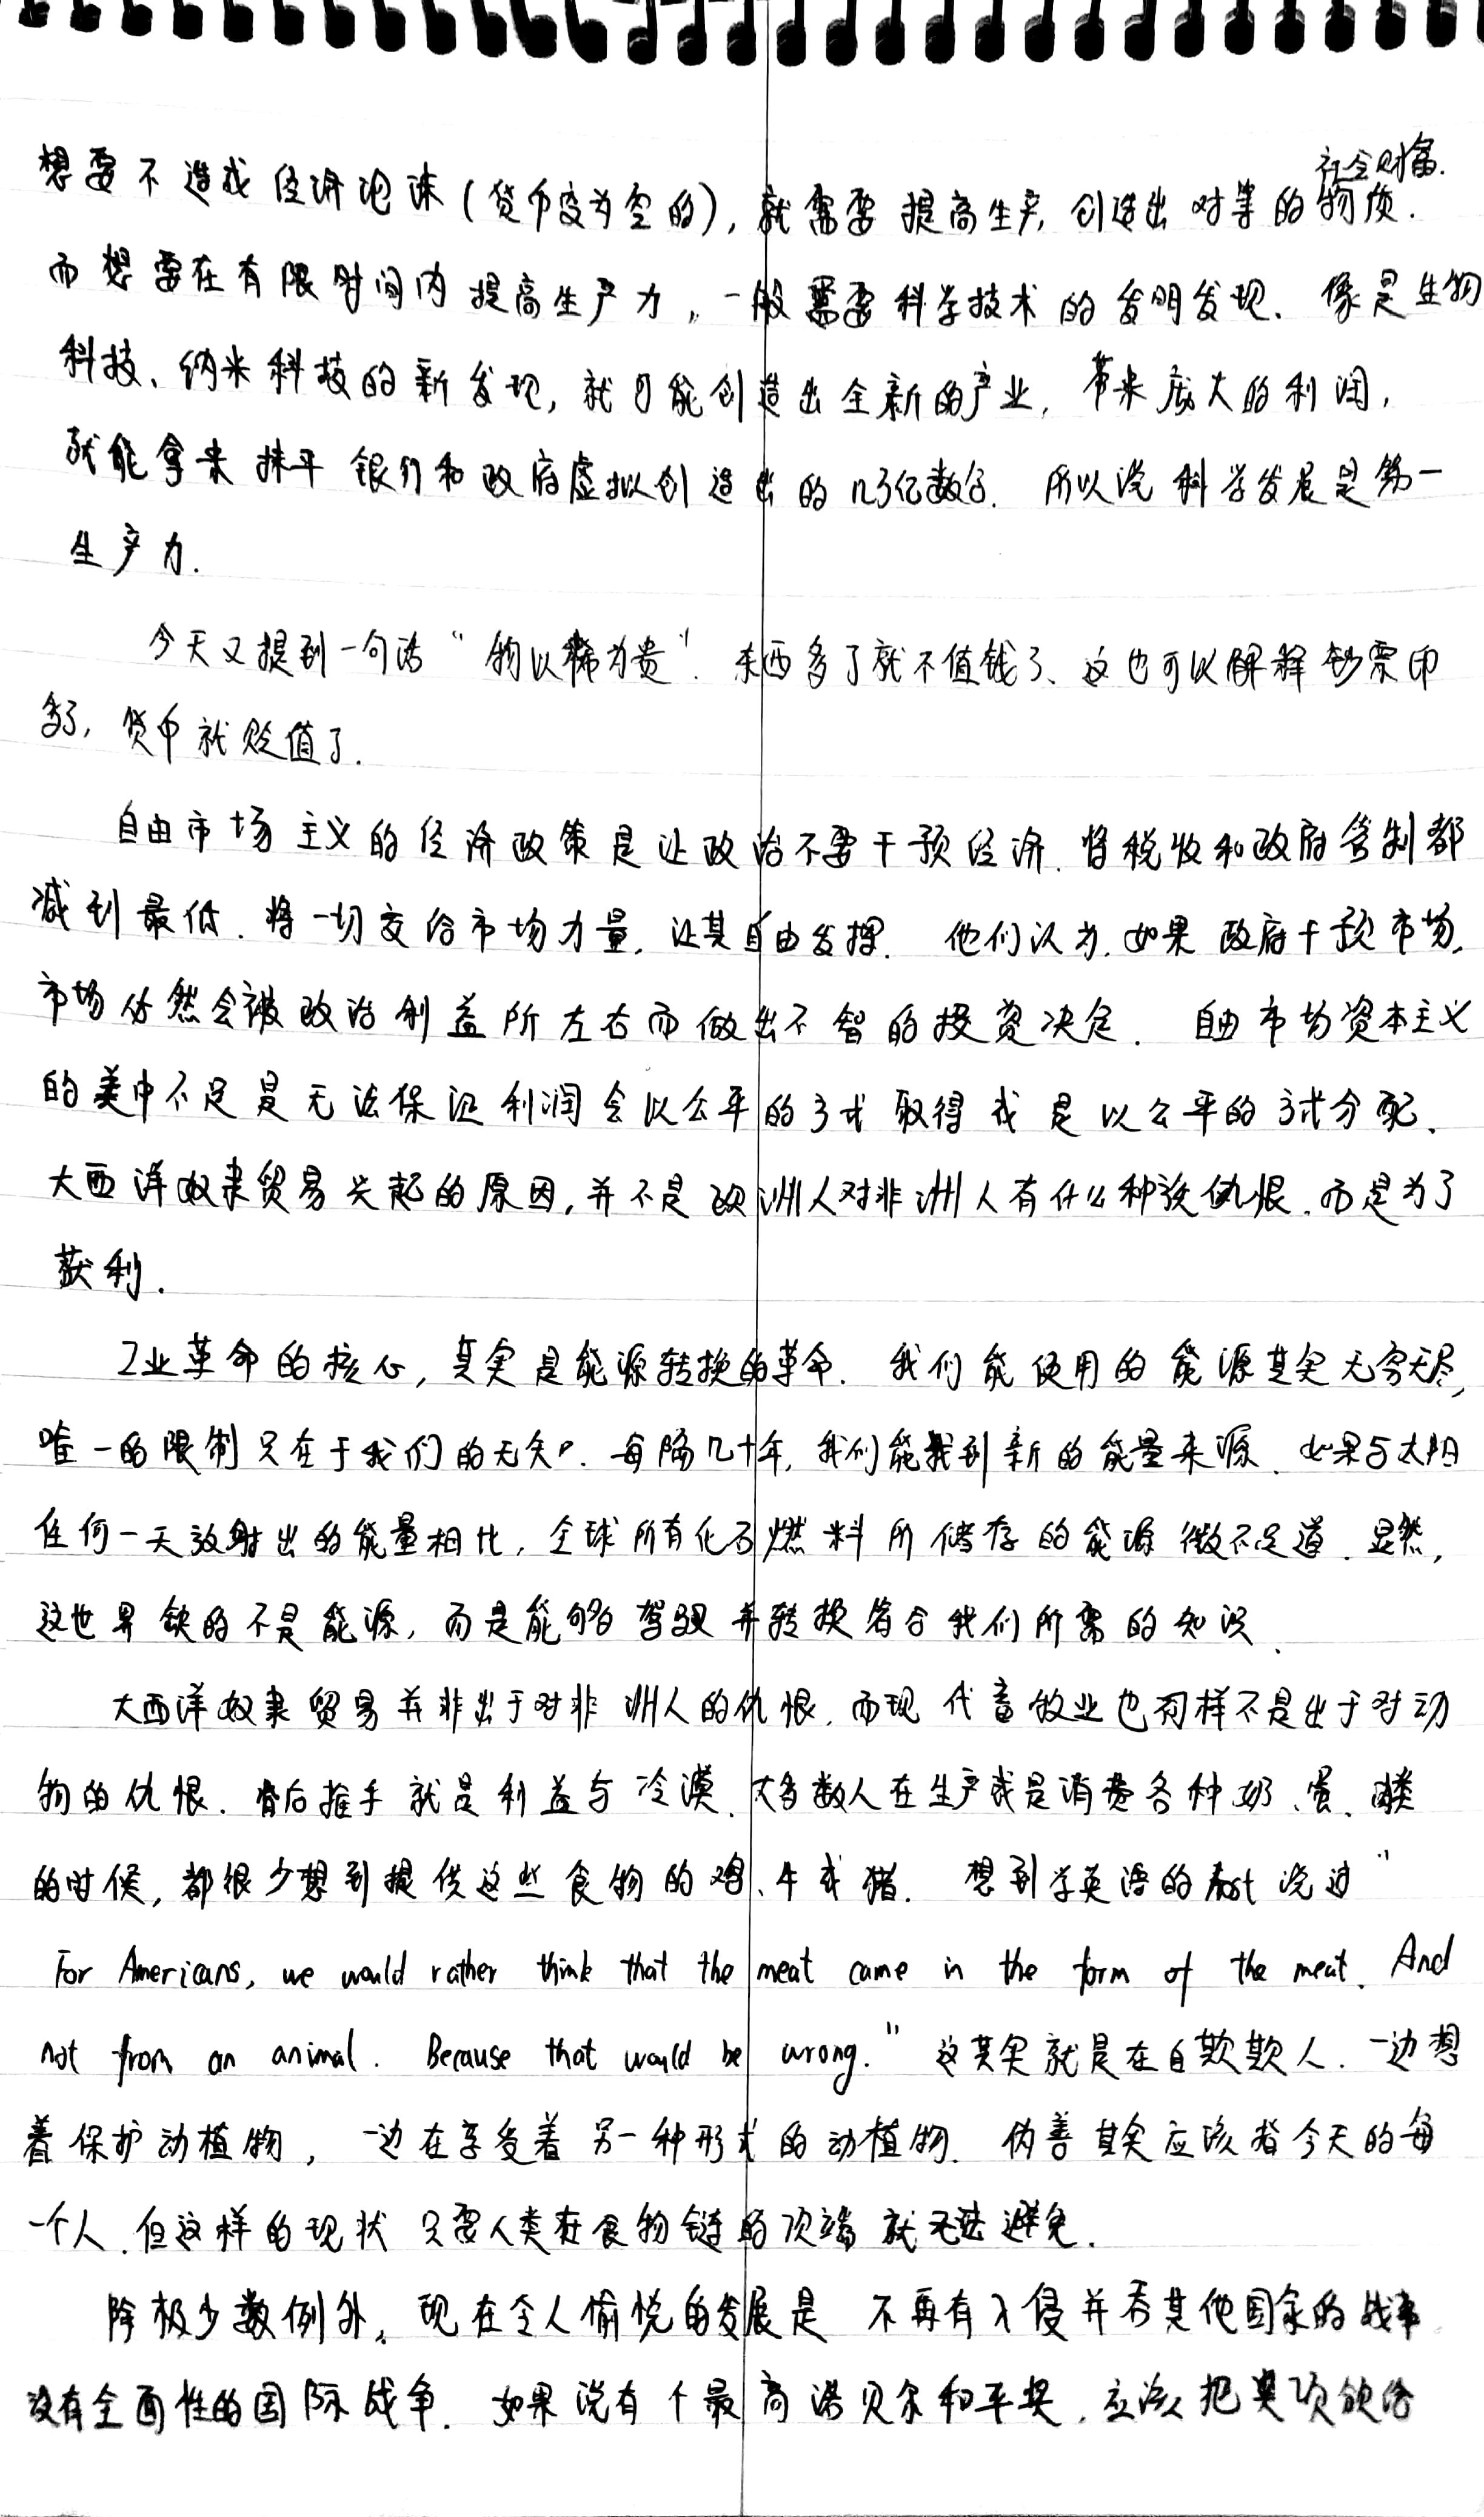 社会财富.
想要不造成经济泡沫(货币变为空的),就需要提高生产,创造出对等的物质.
而想要在有限时间内提高生产力,一般需要科学技术的发明发现.像是生物
科技、纳米科技的新发现,就可能创造出全新的产业,带来庞大的利润,
就能拿来抹平银行和政府虚拟创造出的几万亿数字. 所以说科学发展是第一
生产力.
今天又提到一句话“物以稀为贵”.东西多了就不值钱了、这也可以解释钞票印
多了,货币就贬值了.
自由市场主义的经济政策是让政治不要干预经济.将税收和政府管制都
减到最低.将一切交给市场力量,让其自由发挥. 他们认为,如果政府干预市场,
市场仍然会被政治利益所左右而做出不智的投资决定. 自由市场资本主义
的美中不足是无法保证利润会以公平的方式取得或是以公平的方式分配.
大西洋奴隶贸易兴起的原因,并不是欧洲人对非洲人有什么种族仇恨.而是为了
获利.
工业革命的核心,其实是能源转换的革命. 我们能使用的能源其实无穷无尽,
唯一的限制只在于我们的无知. 每隔几十年,我们能找到新的能量来源.如果与太阳
任何一天放射出的能量相比,全球所有化石燃料所储存的能源微不足道.显然,
这世界缺的不是能源,而是能够驾驭并转换符合我们所需的知识.
大西洋奴隶贸易并非出于对非洲人的仇恨.而现代畜牧业也同样不是出于对动
物的仇恨.背后推手就是利益与冷漠.大多数人在生产或是消费各种奶、蛋、肉类
的时候,都很少想到提供这些食物的鸡、牛或猪. 想到学英语的host说过“
For Americans, we would rather think that the meat came in the form of the meat. And
not from an animal. Because that would be wrong.” 这其实就是在自欺欺人.一边想
着保护动植物,一边在享受着另一种形式的动植物. 伪善其实应该指今天的每
一个人.但这样的现状只要人类在食物链的顶端就无法避免.
除极少数例外,现在令人愉悦的发展是不再有入侵并吞其他国家的战事
没有全面性的国际战争. 如果说有个最高诺贝尔和平奖,应该把奖项颁给